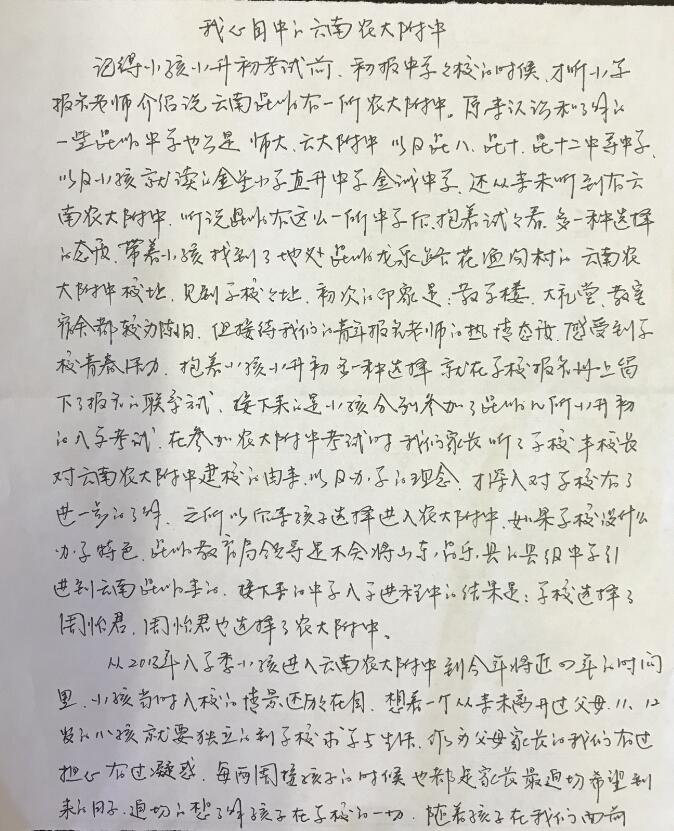 我心目中的云南农大附中
记得小孩小升初考试前、初报中学学校的时候、才听小学
报名老师介绍说云南昆明有一所农大附中。原来认识和了解的
一些昆明中学也只是师大、云大附中以及昆八、昆十、昆十二中等中学、
以及小孩就读的金星小学直升中学金诚中学、还从来听到有云
南农大附中、听说昆明有这么一所中学后、抱着试试看、多一种选择
的态度、带着小孩找到了地处昆明龙泉路花渔沟村的云南农
大附中校址、见到学校校址、初次的印象是:教学楼、大礼堂、教室
宿舍都较为陈旧、但接待我们的青年报名老师的热情态度、感受到学
校青春活力、抱着小孩小升初多一种选择就在学校报名册上留
下了报名的联系、接下来的是小孩分别参加了昆明几所小升初
的入学考试、在参加农大附中考试时我们家长听了学校毕校长
对云南农大附中建校的由来、以及办学的理念、才深入对学校有了
进一步的了解、之所以后来孩子选择进入农大附中、如果学校没什么
办学特色、昆明教育局领导是不会将山东昌乐县的县级中学引
进到云南昆明来的、接下来的中学入学进程中的结果是:学校选择了
周怡君、周怡君也选择了农大附中。
从2013年入学季小孩进入云南农大附中到今年将近四年的时间
里、小孩当时入校的情景还历历在目、想着一个从来未离开过父母、11、12
岁的小孩就要独立的到学校求学与生活、作为父母家长的我们有过
担心有过凝惑、每两周接孩子的时候也都是家长最迫切希望到
来的日子、迫切的想了解孩子在学校的一切、随着孩子在我们面前